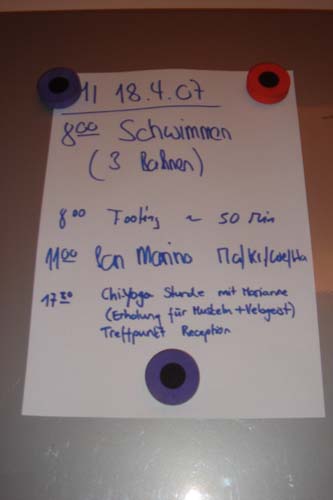 18.4.07
8⁰⁰ Schwimmen
(3 Bahnen)
8⁰⁰ Footing ~ 50 Min
11⁰⁰ San Marino
17³⁰ Chi-Yoga Stunde mit Marianne
(Erholung für Muskeln + Velogeist)
Treffpunkt Reception